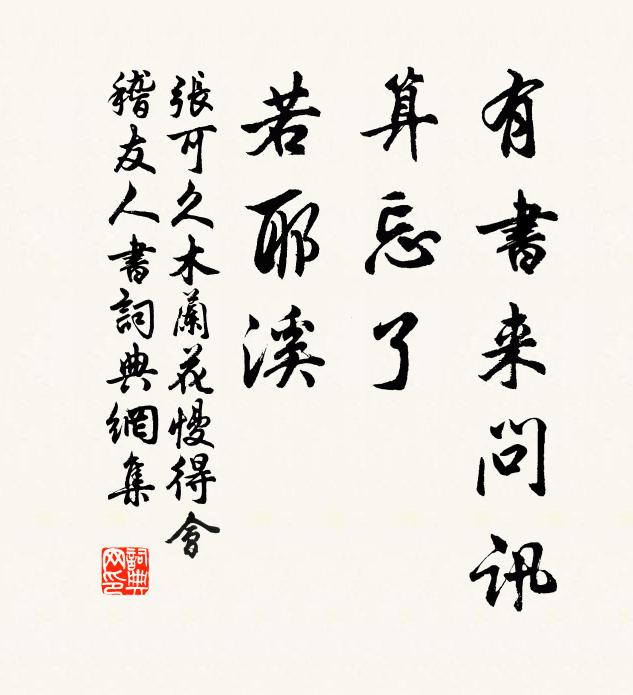 有書来問訊
算忘了
若耶溪
張可久木蘭花慢得會
稽友人書詞典網集
詞典网印